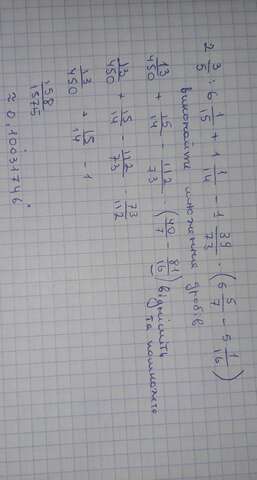 2 3/5 : 6 1/15 + 1 1/14 - 1 39/73 · (6 5/7 - 5 1/16)
виконайте множення дробів
13/450 + 15/14 - 112/73 · (40/7 - 81/16) відніміть та помножте
13/450 + 15/14 - 112/73 · 73/112
13/450 + 15/14 - 1
158/1575
≈ 0,10031746